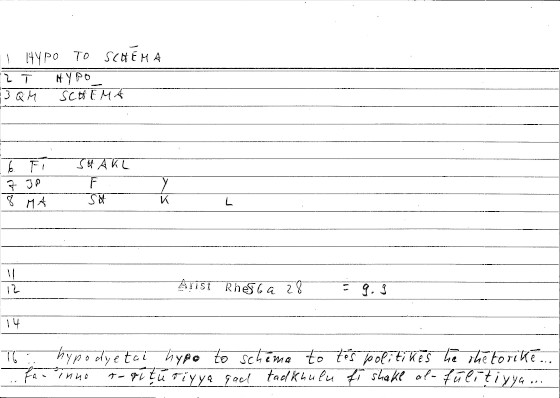 1 HYPO TO SCHĒMA
2 T HYPO
3 QM SCHĒMA
6 FĪ SHAKL
7 JP F Y
8 MA SH K L
11
12 Arist Rhe 56a 28 = 9.9
14
16 .. hypodyetai hypo to schēma to tēs politikēs hē rhētorikē...
.. fa-'inna r-rīṭūriyya qad tadkhulu fī shakl al-fūlīṭiyya...